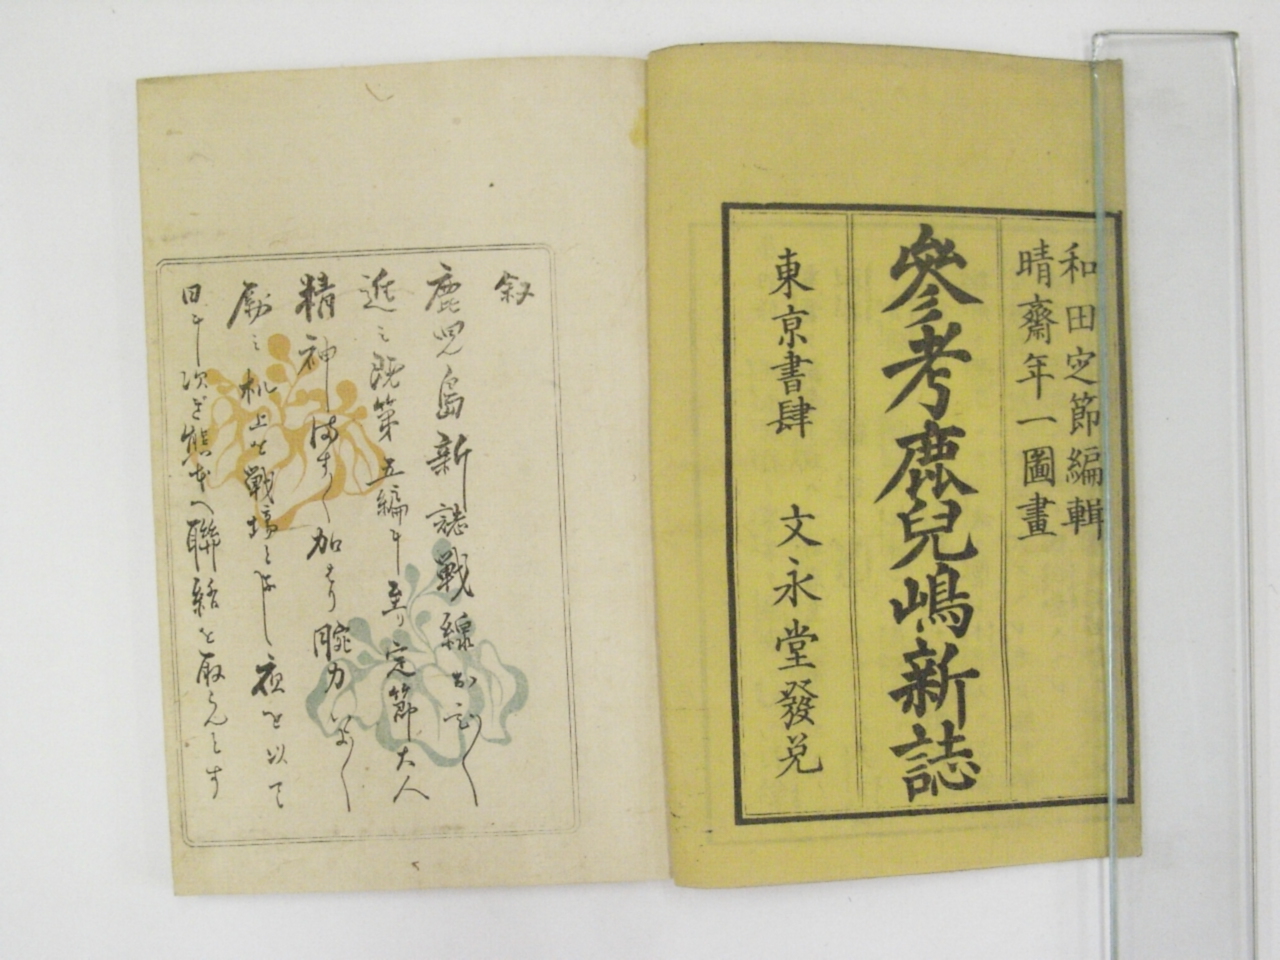 和田定節編輯
晴齋年一圖畫
參考鹿兒嶋新誌
東京書肆 文永堂發兌
叙
鹿児島新誌戦線
近
既第五編ニ至リ定節大人
精神 加 腕力
励ミ机上を戦場と 夜を以て
日ニ次 熊本へ聯絡を取らんとす